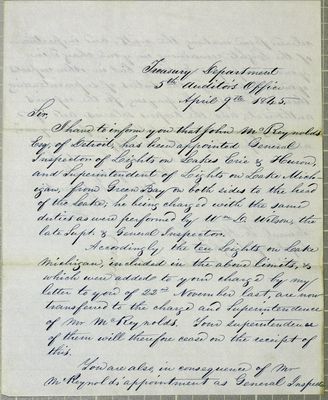 Treasury Department
5th Auditor's Office
April 9th 1845.
Sir,
I have to inform you that John McReynolds
Esq. of Detroit, has been appointed General
Inspector of Lights on Lakes Erie & Huron,
and Superintendent of Lights on Lake Mich-
igan, from Green Bay on both sides to the head
of the Lake, he being charged with the same
duties as were performed by Wm. H. Wilson, the
late Supt. & General Inspector.
Accordingly the ten Lights on Lake
Michigan, included in the above limits, &
which were added to your charge by my
letter to you of 22nd November last, are now
transferred to the charge and Superintendence
of Mr McReynolds. Your Superintendence
of them will therefore cease on the receipt of
this.
You are also, in consequence of Mr
McReynolds' appointment as General Inspec